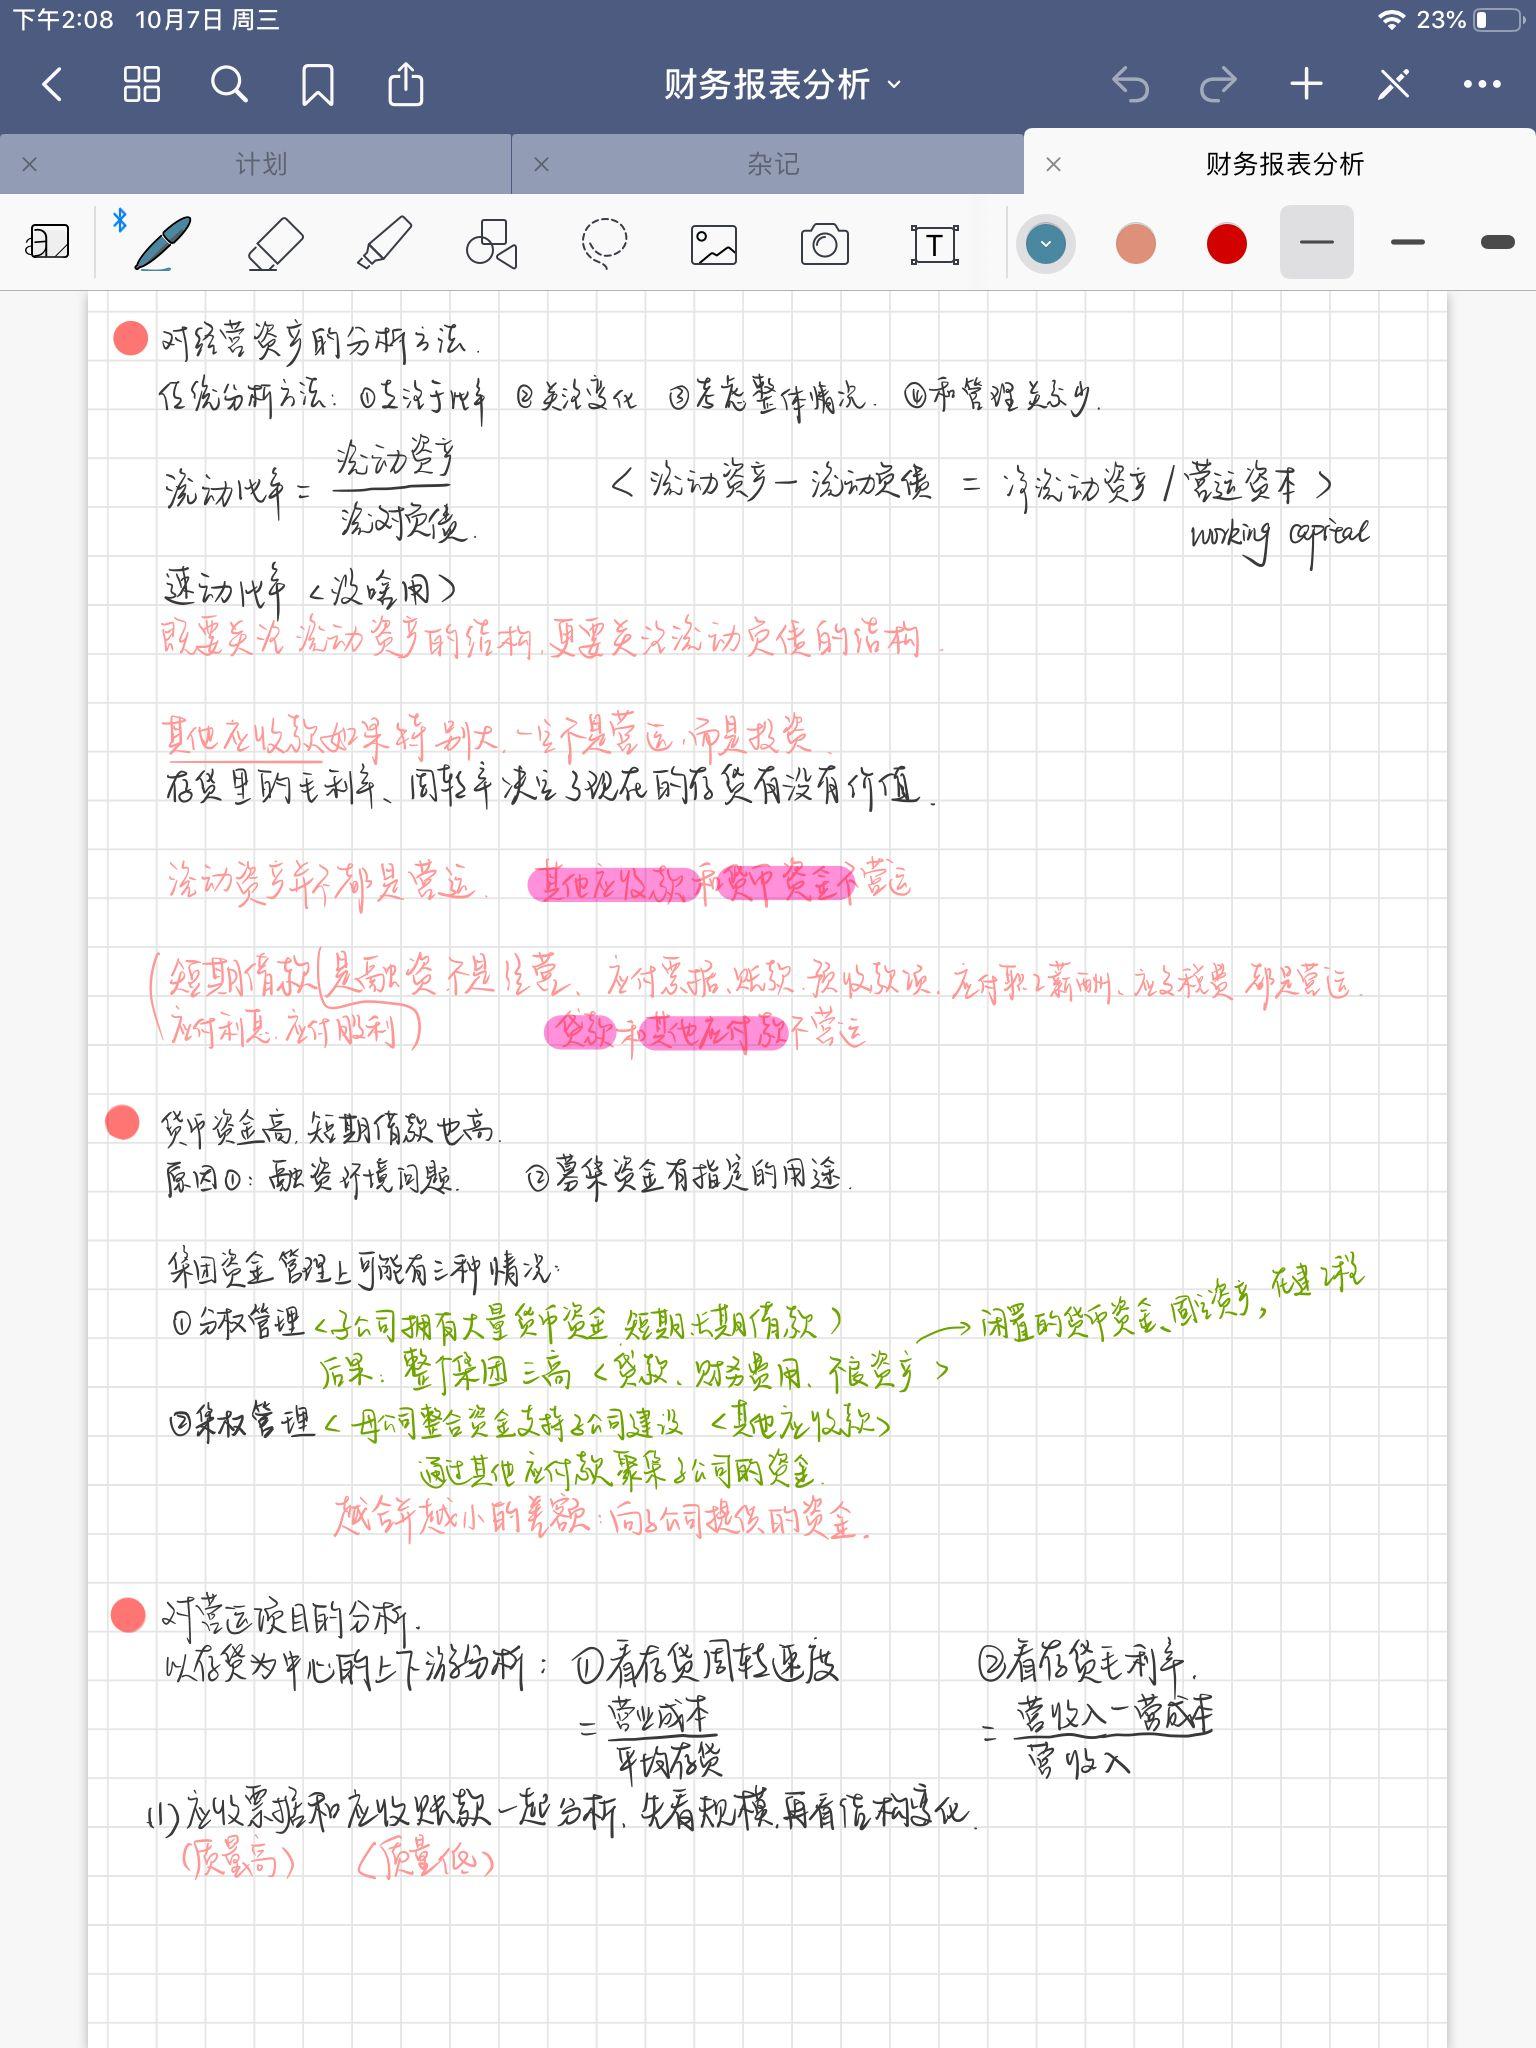 下午2:08 10月7日 周三 23%
财务报表分析
计划 杂记 财务报表分析
T
对经营资产的分析方法.
传统分析方法: ①关注于比率 ②关注变化 ③考虑整体情况. ④和管理关系少.
流动比率 = 流动资产 / 流动负债. <流动资产－流动负债 = 净流动资产/营运资本>
working capital
速动比率<没啥用>
既要关注流动资产的结构,更要关注流动负债的结构.
其他应收款如果特别大,一定不是营运,而是投资.
存货里的毛利率、周转率决定了现在的存货有没有价值.
流动资产并不都是营运. 其他应收款和货币资金不营运
(短期借款(是融资不是经营、应付票据、账款.预收款项.应付职工薪酬、应交税费 都是营运.
应付利息.应付股利) 贷款和其他应付款不营运
货币资金高,短期借款也高.
原因①: 融资环境问题. ②募集资金有指定的用途.
集团资金管理上可能有三种情况:
①分权管理<子公司拥有大量货币资金.短期.长期借款> → 闲置的货币资金、固定资产,在建工程
后果: 整个集团三高<贷款、财务费用、不良资产>
②集权管理<母公司整合资金支持子公司建设 <其他应收款>
通过其他应付款聚集子公司的资金.
越合并越小的差额:向子公司提供的资金.
对营运项目的分析.
以存货为中心的上下游分析: ①看存货周转速度 ②看存货毛利率.
= 营业成本 / 平均存货 = 营收入－营成本 / 营收入
(1)应收票据和应收账款一起分析,先看规模,再看结构变化.
(质量高) <质量低>